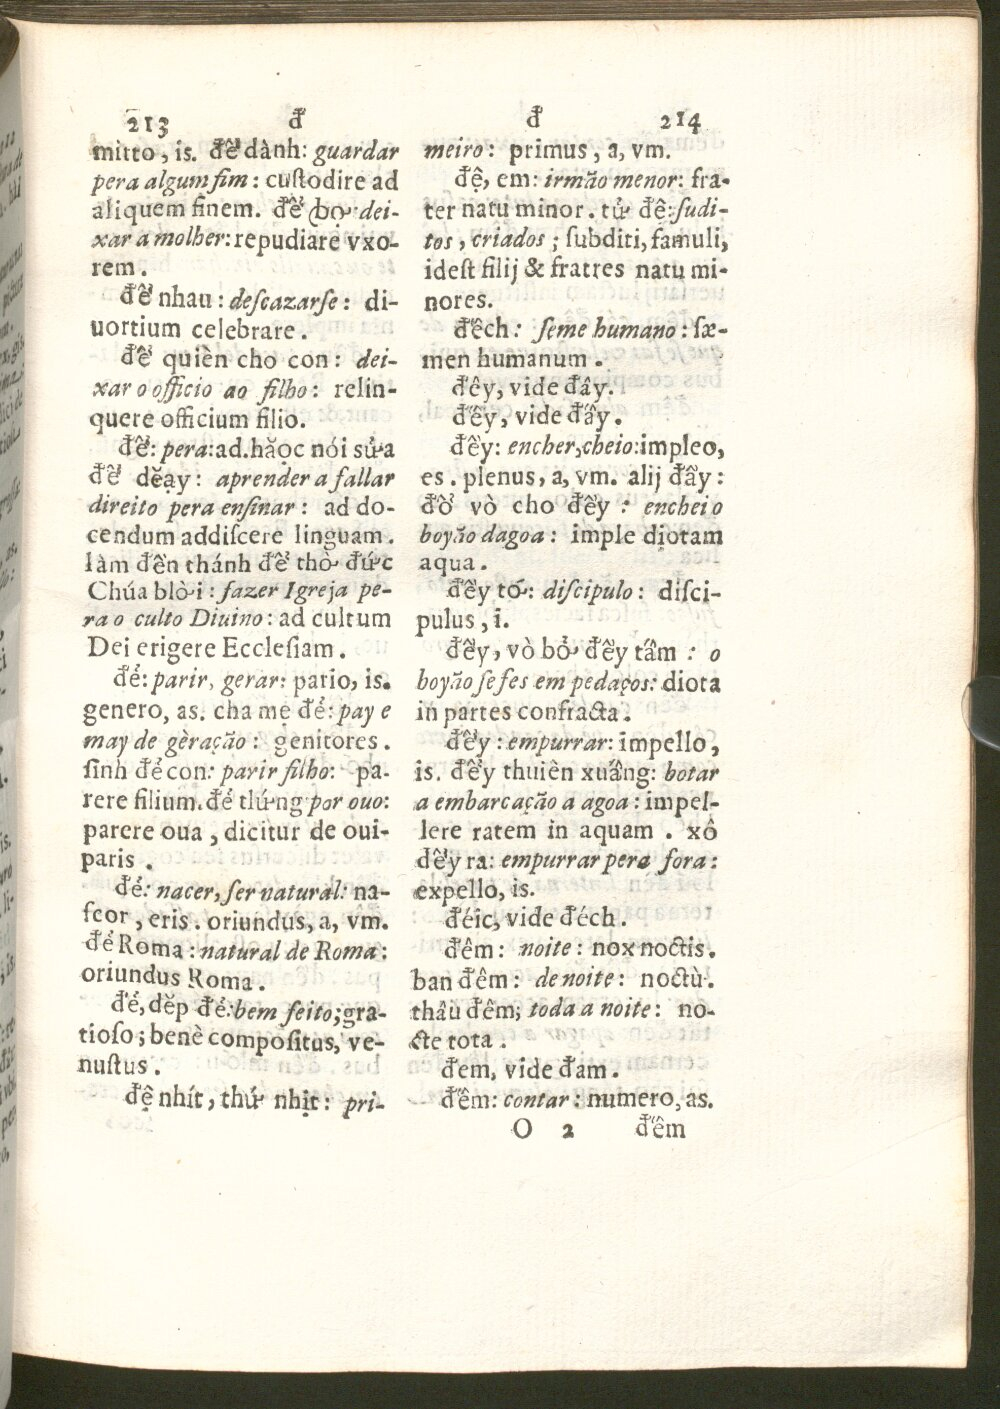 213 đ
mitto, is. để dành: guardar
pera algum fim: cuſtodire ad
aliquem finem. để ꞗợ: dei-
xar a molher: repudiare vxo-
rem.
để nhau: deſcazarſe: di-
uortium celebrare.
để quièn cho con: dei-
xar o officio ao filho: relin-
quere officium filio.
để: pera: ad. hăọc nói sửa
để dĕạy: aprender a fallar
direito pera enſinar: ad do-
cendum addiſcere linguam.
làm đền thánh để thờ đức
Chúa blời: fazer Igreja pe-
ra o culto Diuino: ad cultum
Dei erigere Eccleſiam.
đẻ: parir, gerar: pario, is.
genero, as. cha mẹ đẻ: pay e
may de gèração: genitores.
ſinh đẻ con: parir filho: pa-
rere filium. đẻ tlứng por ouo:
parere oua, dicitur de oui-
paris.
đẻ: nacer, ſer natural: na-
ſcor, eris. oriundus, a, vm.
đẻ Roma: natural de Roma:
oriundus Roma.
đẻ, dĕp đẻ: bem feito; gra-
tioſo; benè compoſitus, ve-
nuſtus.
đệ nhít, thứ nhịt: pri-
đ 214
meiro: primus, a, vm.
đệ, em: irmão menor: fra-
ter natu minor. tử đệ: ſudi-
tos, criados; ſubditi, famuli,
ideſt filij & fratres natu mi-
nores.
đếch: ſeme humano: ſæ-
men humanum.
đêy, vide đây.
đếy, vide đấy.
đềy: encher, cheio: impleo,
es. plenus, a, vm. alij đầy:
đổ vò cho đềy: encheio
boyão dagoa: imple diotam
aqua.
đềy tớ: diſcipulo: diſci-
pulus, i.
đềy, vò bở đềy tấm: o
boyão ſefes em pedaços: diota
in partes confracta.
đếy: empurrar: impello,
is. đếy thuièn xuấng: botar
a embarcação a agoa: impel-
lere ratem in aquam. xô
đếy ra: empurrar pera fora:
expello, is.
đéic, vide đéch.
đêm: noite: nox noctis.
ban đêm: de noite: noctù.
thâu đêm; toda a noite: no-
cte tota.
đem, vide đam.
đếm: contar: numero, as.
O 2 đêm